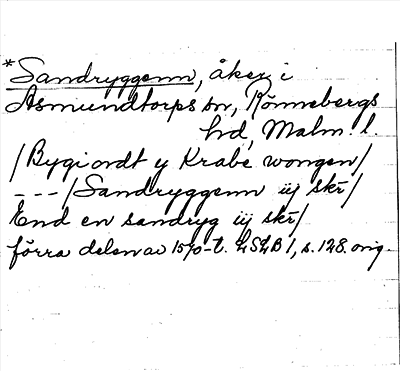 *Sandryggenn, åker i
Asmundtorps sn, Rönnebergs
hd, Malm. l.
/Bygi ordt y Krabe wongen/
---/Sandryggenn iij skr/
End en sandryg iij skr/
förra delen av 1570-t. LSLB 1, s. 128. orig.